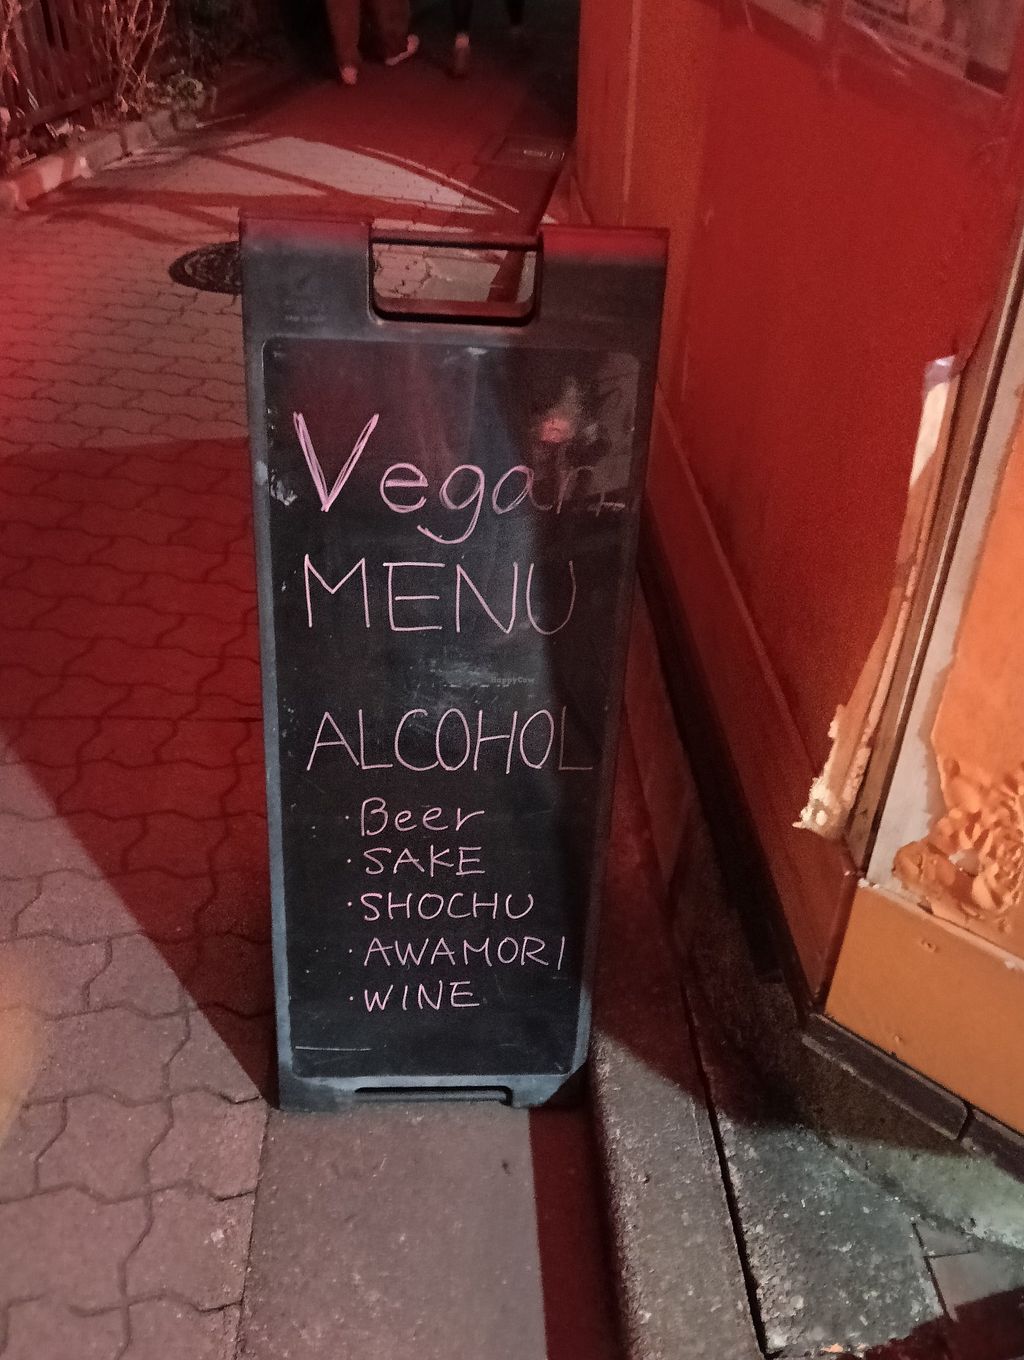 Vegan
MENU
HappyCow
ALCOHOL
· Beer
· SAKE
· SHOCHU
· AWAMORI
· WINE